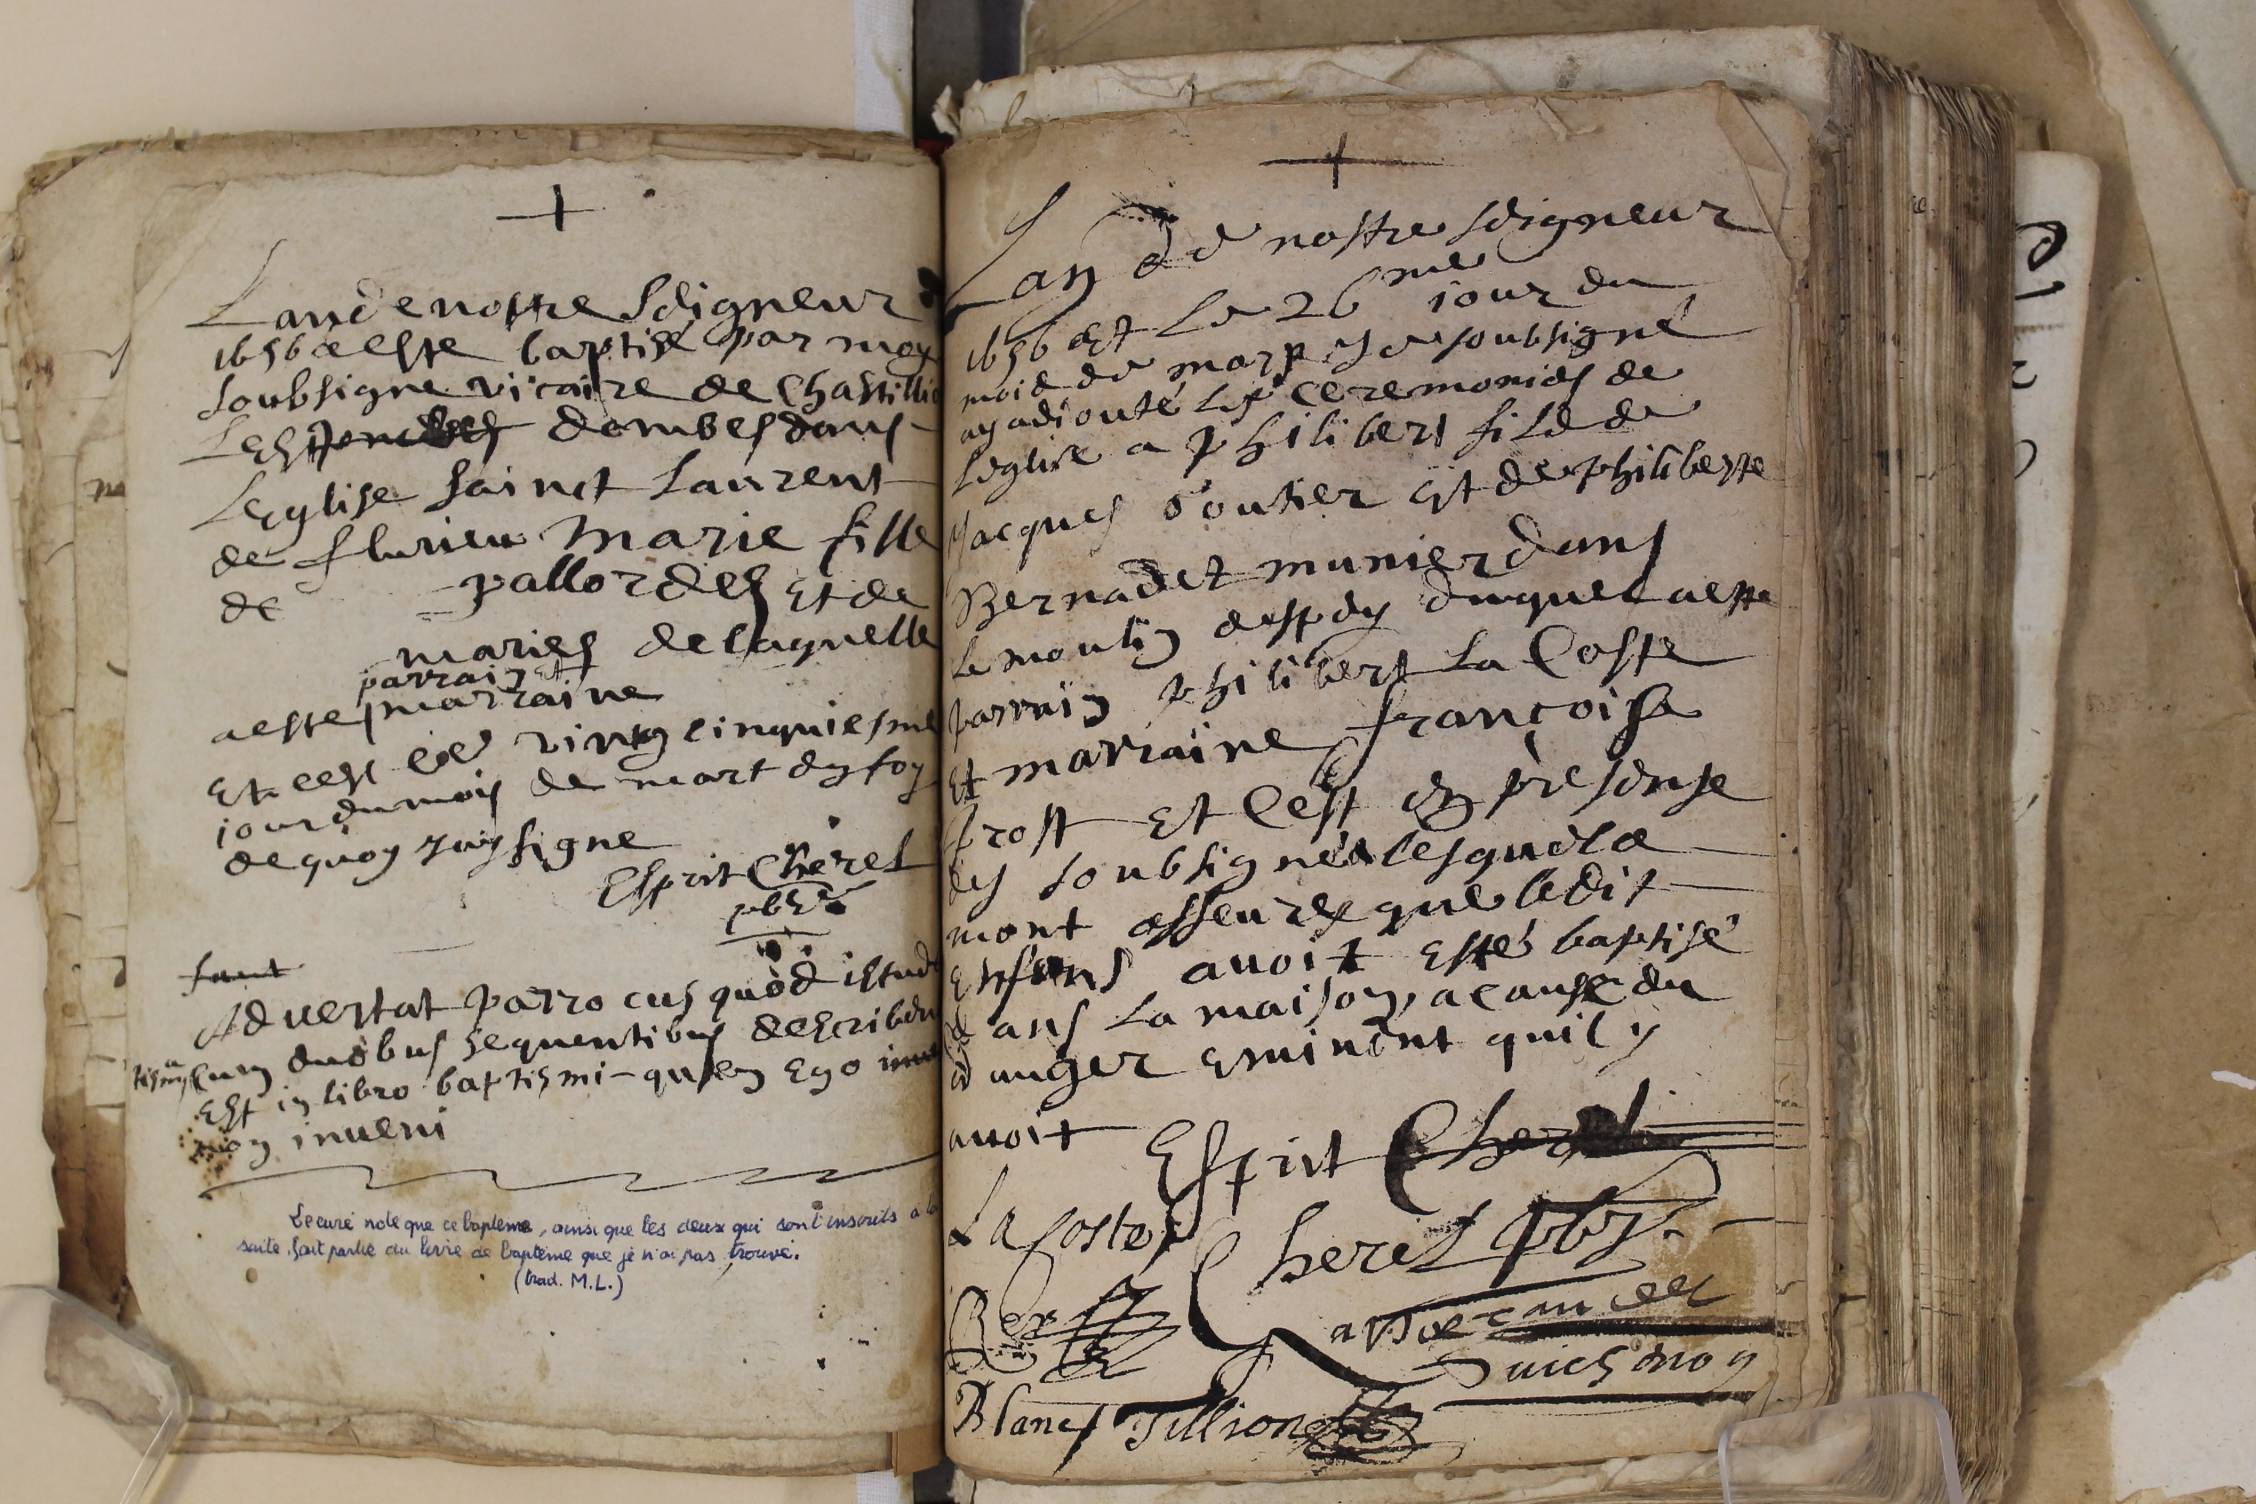 +
Lan de nostre Seigneur
1656 a este baptisé par moy
soubsigne vicaire de Chastillio
Les dombes dans
Leglise sainct Laurent
de flurieu marie fille
de pallordes et de
maries de laquelle
parrain et
a este marraine
Et cest le vingt cinquiesme
jour du mois de mart en foy
de quoy jay signe
Esprit Cheret
pbre
Advertat parrocus quod istud
cum duobus sequentibus describdu
est in libro baptismi quem ego
non inveni
Le curé note que ce baptême, ainsi que les deux qui sont inscrits à la
suite fait partie du livre de baptême que je n'ai pas trouvé.
(trad. M.L.)
+
Lan de nostre Seigneur
1656 et Le 26me jour du
mois de mars je soubsigné
ay adiouté les ceremonies de
Leglise a philibert fils de
Jacques Soutier et de philiberte
Bernadet munier dans
Le moulin despey duquel a este
parrain philibert La Coste
Et marraine françoise
prost Et Cest en presense
des soubsignés lesquels
mont asseures que ledit
Enfans avoit esté baptisé
dans La maison, a cause du
danger eminent quil y
avoit Esprit Cheret
La coste
Cheret pbr.
Blanc Tillion